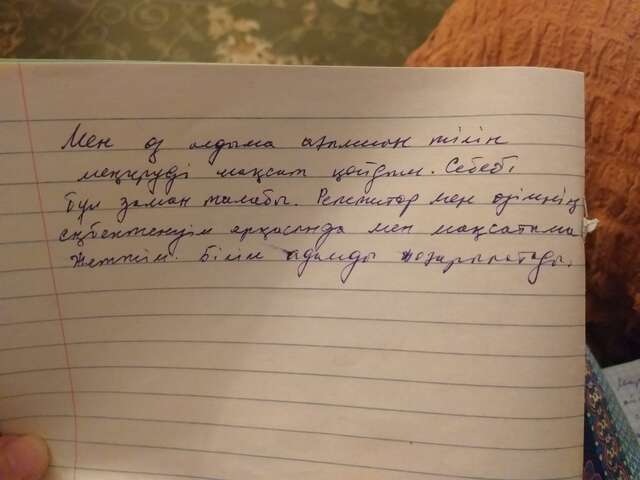 Мен өз алдыма ағылшын тілін
меңгеруді мақсат қойдым. Себебі
бұл заман талабы. Репетитор мен өзімнің
еңбектенуім арқасында мен мақсатыма
жеттім. Білім адамды жоғарылатады.